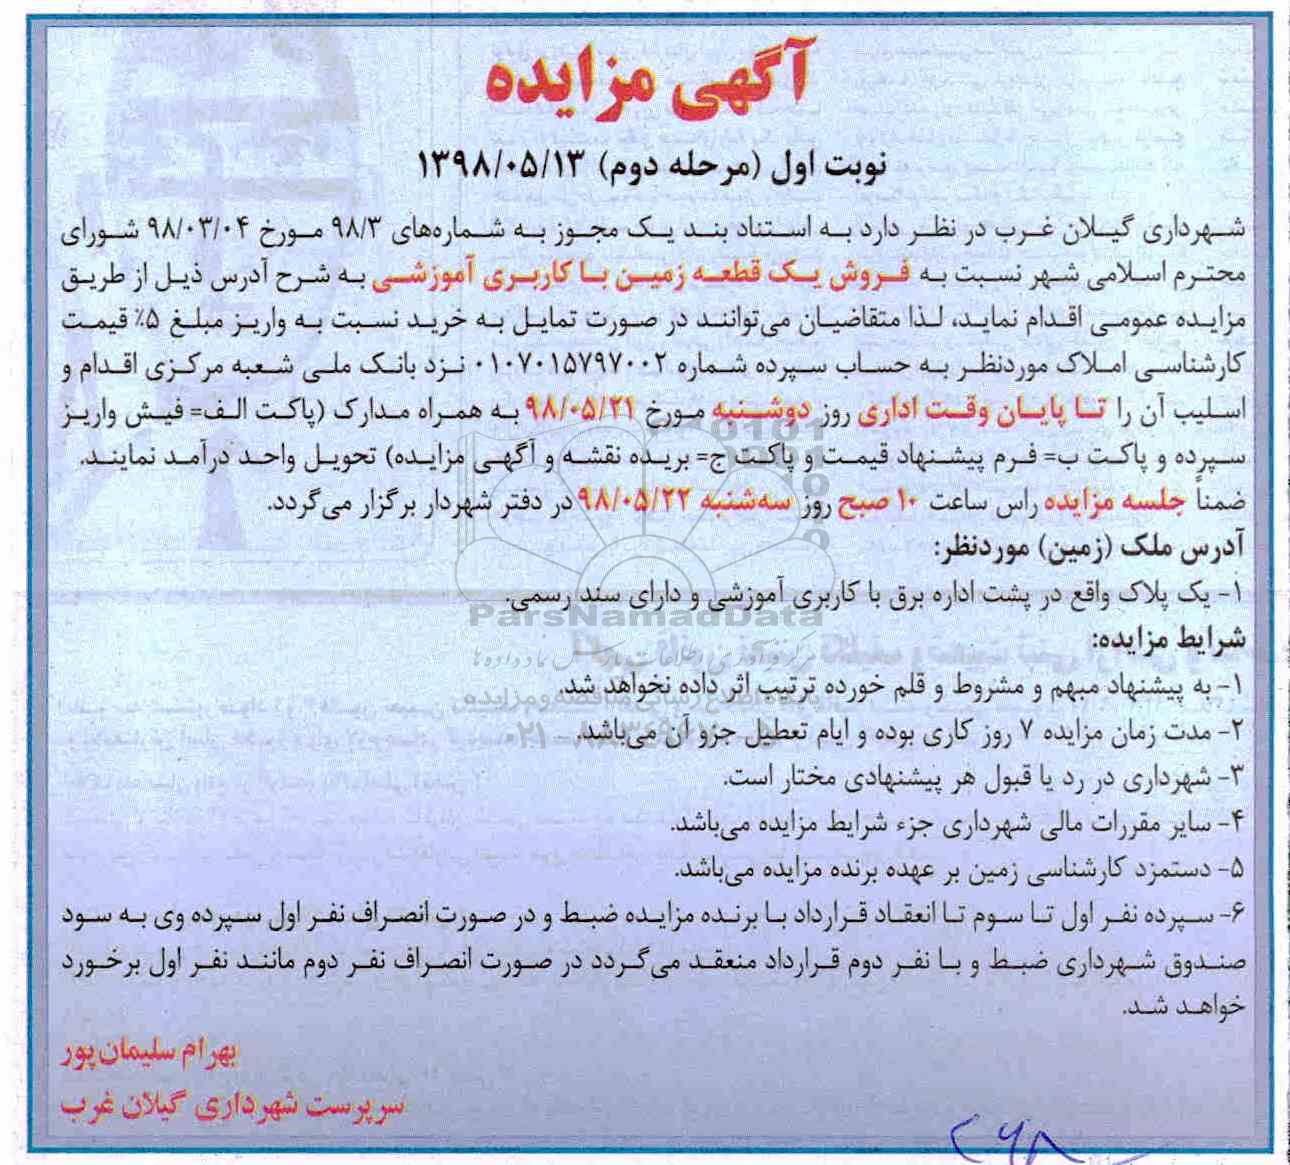 آگهی مزایده
نوبت اول (مرحله دوم) ۱۳۹۸/۰۵/۱۳
شهرداری گیلان غرب در نظر دارد به استناد بند یک مجوز به شماره‌های ۹۸/۳ مورخ ۹۸/۰۳/۰۴ شورای
محترم اسلامی شهر نسبت به فروش یک قطعه زمین با کاربری آموزشی به شرح آدرس ذیل از طریق
مزایده عمومی اقدام نماید، لذا متقاضیان می‌توانند در صورت تمایل به خرید نسبت به واریز مبلغ ۵٪ قیمت
کارشناسی املاک موردنظر به حساب سپرده شماره ۰۱۰۷۰۱۵۷۹۷۰۰۲ نزد بانک ملی شعبه مرکزی اقدام و
اسلیب آن را تا پایان وقت اداری روز دوشنبه مورخ ۹۸/۰۵/۲۱ به همراه مدارک (پاکت الف= فیش واریز
سپرده و پاکت ب= فرم پیشنهاد قیمت و پاکت ج= بریده نقشه و آگهی مزایده) تحویل واحد درآمد نمایند.
ضمناً جلسه مزایده راس ساعت ۱۰ صبح روز سه‌شنبه ۹۸/۰۵/۲۲ در دفتر شهردار برگزار می‌گردد.
آدرس ملک (زمین) موردنظر:
۱- یک پلاک واقع در پشت اداره برق با کاربری آموزشی و دارای سند رسمی.
ParsNamadData
شرایط مزایده:
۱- به پیشنهاد مبهم و مشروط و قلم خورده ترتیب اثر داده نخواهد شد.
۲- مدت زمان مزایده ۷ روز کاری بوده و ایام تعطیل جزو آن می‌باشد.
۳- شهرداری در رد یا قبول هر پیشنهادی مختار است.
۴- سایر مقررات مالی شهرداری جزء شرایط مزایده می‌باشد.
۵- دستمزد کارشناسی زمین بر عهده برنده مزایده می‌باشد.
۶- سپرده نفر اول تا سوم تا انعقاد قرارداد با برنده مزایده ضبط و در صورت انصراف نفر اول سپرده وی به سود
صندوق شهرداری ضبط و با نفر دوم قرارداد منعقد می‌گردد در صورت انصراف نفر دوم مانند نفر اول برخورد
خواهد شد.
بهرام سلیمان‌پور
سرپرست شهرداری گیلان غرب